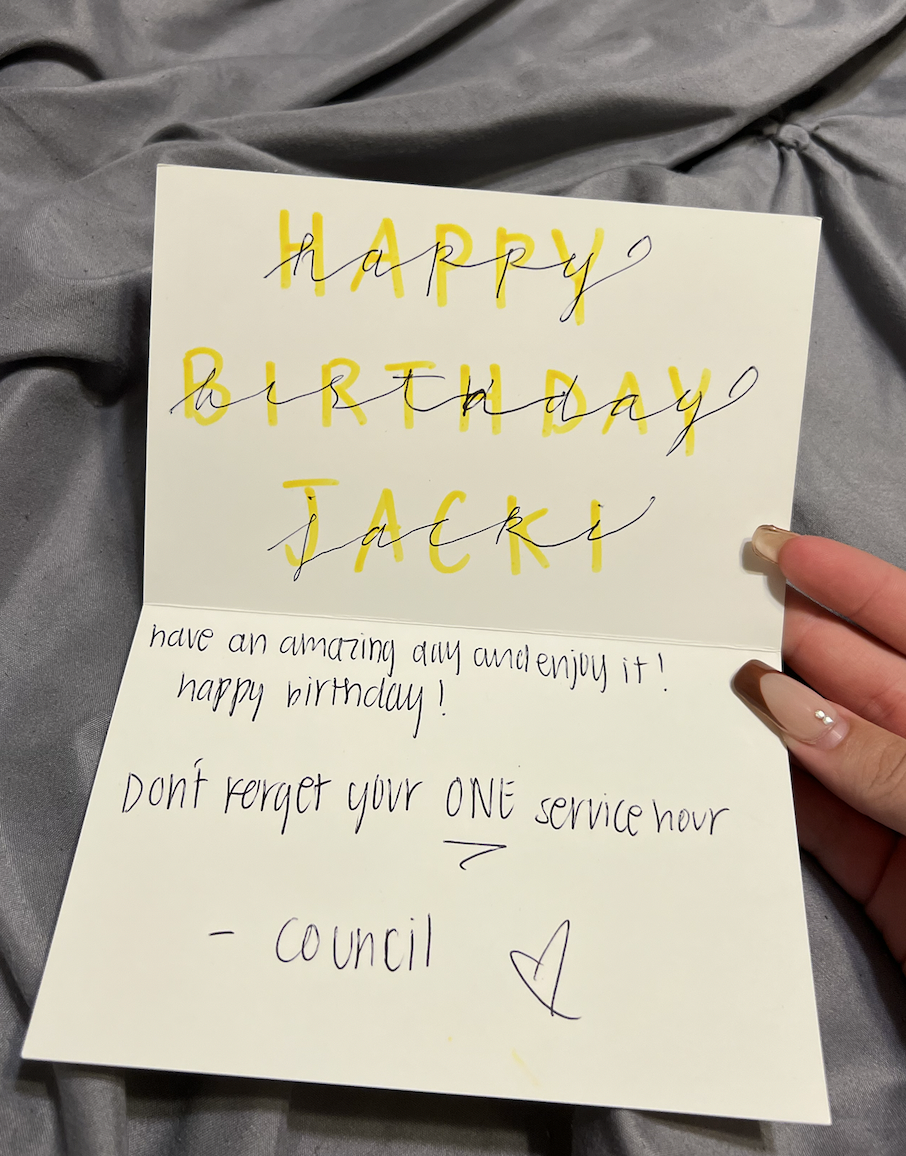 HAPPY
happy
BIRTHDAY
birthday
JACKI
jacki
have an amazing day and enjoy it!
happy birthday!
Don't forget your ONE service hour
- council